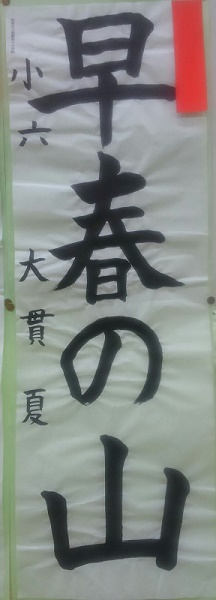 早春の山
小六 大貫 夏